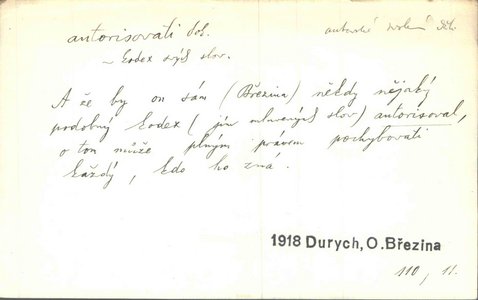 autorisovati dok.
~ kodex svých slov.
A že by on sám (Březina) někdy nějaký
podobný kodex (jím mluvených slov) autorisoval,
o tom může plným právem pochybovati
každý, kdo ho zná.
1918 Durych, O. Březina
110, 11.